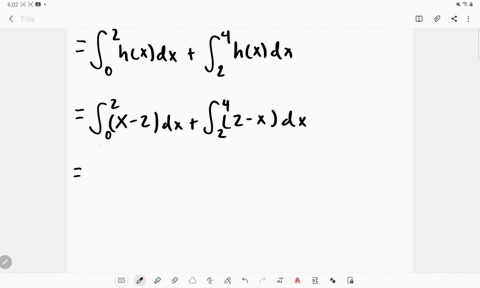 6:02
Title
= ∫₀² h(x)dx + ∫₂⁴ h(x)dx
= ∫₀² (x-2)dx + ∫₂⁴ (2-x)dx
=